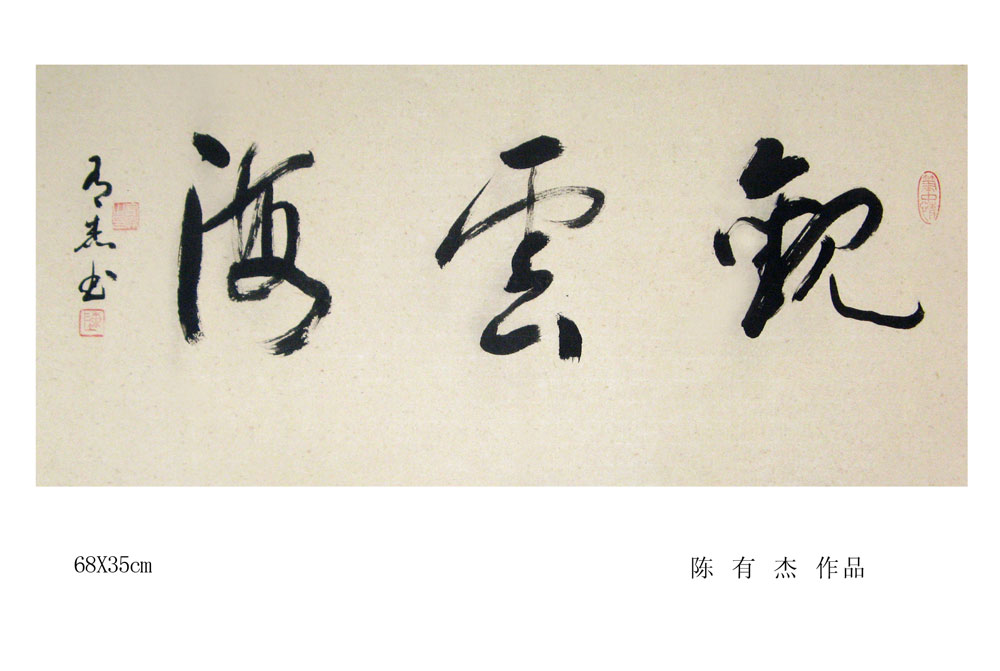 觀雲海
有杰书
68X35cm
陈 有 杰 作品